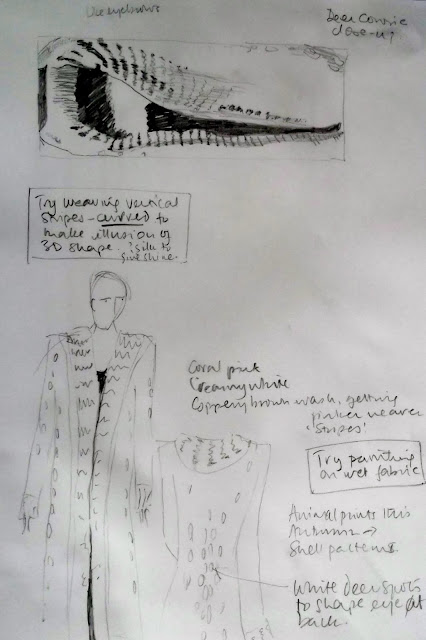 Use eyebrows
Deer Cowrie
close-up
Try weaving vertical
stripes - curved to
make illusion of
3D shape. ? Silk to
give shine.
Coral pink
Creamy white
Coppery brown wash, getting
pinker nearer
'stripes'
Try painting
on wet fabric
Animal prints this
Autumn →
Shell patterns.
White deer spots
to shape eye at
back.